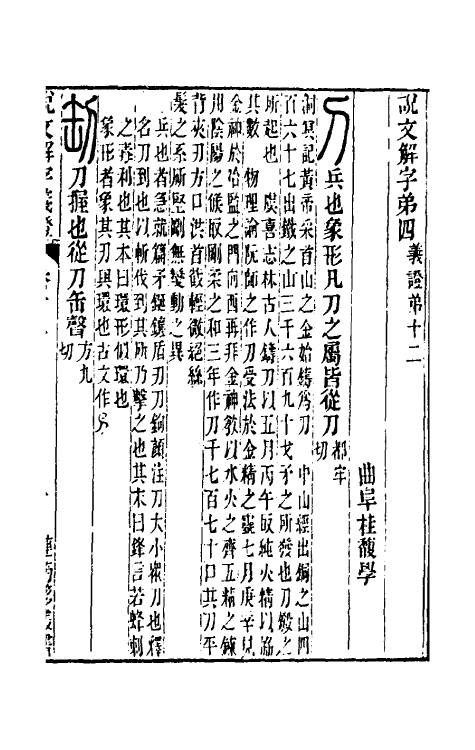 說文解字弟四　義證弟十二
曲阜桂馥學
刀　兵也象形凡刀之屬皆從刀　都牢切
洞冥記黃帝采首山之金始鑄爲刀　中山經出銅之山四
百六十七出鐵之山三千六百九十戈矛之所發也刀鎩之
所起也　虞喜志林古人鑄刀以五月丙午取純火精以協
其數　物理論阮師之作刀受法於金精之靈七月庚辛見
金神於冶監之門向西再拜金神敎以水火之齊五精之鍊
用陰陽之候取剛柔之和三年作刀千七百七十口其刀平
背夾刃方口洪首截輕微絕絲
髮之系斫堅剛無變動之異
兵也者急就篇矛鋋鑲盾刃刀鉤顏注刀大小衆刀也釋
名刀到也以斬伐到其所乃擊之也其末曰鋒言若蜂刺
之毒利也其本曰環形似環也
象形者象其刃與環也古文作
刀握也從刀缶聲　方九切
說文解字義證